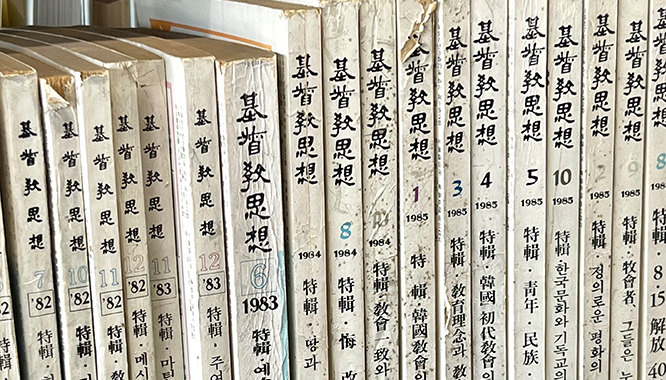 基督敎思想
7
'82
基督敎思想
10
'82
特輯
基督敎思想
11
'82
特輯
基督敎思想
12
'82
特輯·메시
基督敎思想
11
'83
特輯·마틴
基督敎思想
12
'83
特輯·주여
基督敎思想
6
1983
特輯·예
基督敎思想
1984
特輯·땅과
基督敎思想
8
1984
特輯·悔改
基督敎思想
1984
特輯·敎會一致와
基督敎思想
1
1985
特輯·韓國敎會의
基督敎思想
3
1985
特輯·敎育理念과 敎
基督敎思想
4
1985
特輯·韓國初代敎會의
基督敎思想
5
1985
特輯·靑年·民族
基督敎思想
10
1985
特輯·한국문화와 기독교의
基督敎思想
2
1985
特輯·정의로운 평화의
基督敎思想
9
1985
特輯·牧會者, 그들은 누
基督敎思想
8
1985
特輯·8·15解放40